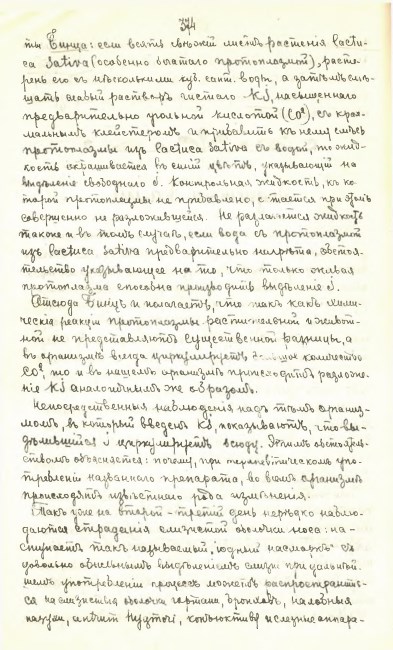 374
ты Бинца: если взять свѣжій листъ растенія lactu-
ca sativa (особенно богатаго протоплазмой), расте-
реть его съ нѣсколькими куб. сант. воды, а затѣмъ смѣ-
шать слабый растворъ чистаго KJ, насыщеннаго
предварительно угольной кислотой (CO²), съ крах-
мальнымъ клейстеромъ и прибавить къ нему смѣсь
протоплазмы изъ lactuca sativa съ водой, то жид-
кость окрашивается въ синій цвѣтъ, указывающій на
выдѣленіе свободнаго J. Контрольная жидкость, къ ко-
торой протоплазмы не прибавлено, остается при этомъ
совершенно не разложившейся. Не разлагается жидкость
также и въ томъ случаѣ, если вода съ протоплазмой
изъ lactuca sativa предварительно нагрѣта, обстоя-
тельство указывающее на то, что только живая
протоплазма способна производить выдѣленіе J.
Отсюда Бинцъ и полагаетъ, что такъ какъ хими-
ческія реакціи протоплазмы растительной и живот-
ной не представляютъ существенной разницы, а
въ организмѣ всегда циркулируетъ большое количество
CO², то и въ нашемъ организмѣ происходитъ разложе-
ніе KJ аналогичнымъ же образомъ.
Непосредственныя наблюденія надъ тѣмъ организ-
момъ, въ который введенъ KJ, показываютъ, что вы-
дѣлившійся J циркулируетъ всюду. Этимъ обстоятель-
ствомъ объясняется: почему, при терапевтическомъ упо-
требленіи названнаго препарата, во всемъ организмѣ
происходятъ извѣстнаго рода измѣненія.
Такъ уже на второй - третій день нерѣдко наблю-
даются страданія слизистой оболочки носа: на-
ступаетъ такъ называемый „іодный насморкъ" съ
довольно обильнымъ выдѣленіемъ слизи при дальнѣй-
шемъ употребленіи процессъ можетъ распространить-
ся на слизистыя оболочки гортани, бронховъ, на лобныя
пазухи, конъюктиву и слезные аппара-